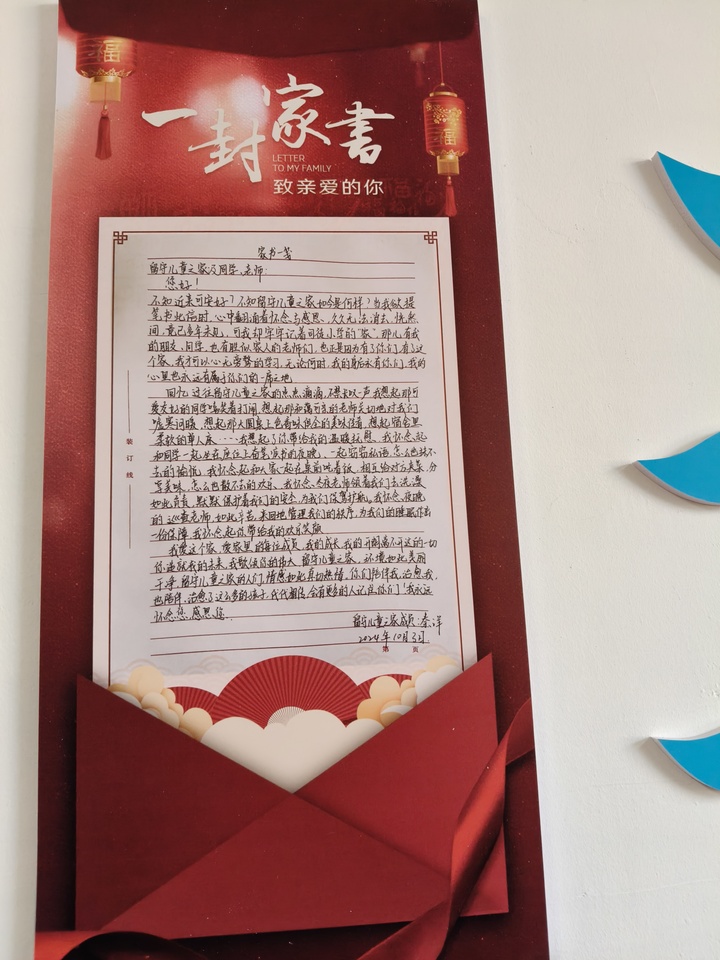 福
福
一封家书
LETTER
TO MY FAMILY
致亲爱的你
家书一笺
留守儿童之家及同学、老师:
您好!
不知近来可安好?不知留守儿童之家如今是何样?当我欲提
笔书此信时,心中翻涌着怀念与感恩,久久无法消去,恍然
间,竟已多年未见,可我却牢牢记着司徒小学的“家”,那儿有我
的朋友、同学,也有胜似家人的老师们,也正是因为有了你们,有了这
个家,我才可以心无旁骛的学习,无论何时,我的身后永有你们,我的
心里也永远有属于你们的一席之地
回忆过往留守儿童之家的点点滴滴,不禁长叹一声,我想起那可
爱友好的同学嬉笑着打闹,想起那和蔼可亲的老师关切地对我们
嘘寒问暖,想起那大圆桌上色香味俱全的美味佳肴,想起宿舍里
柔软的单人床……我想起了你带给我的温暖抚慰,我怀念起
和同学一起坐在座位上奋笔读书的夜晚、一起窃窃私语,怎么也耗不
去的愉悦,我怀念起和大家一起在桌前吃着饭,相互给对方夹菜,分
享美味,怎么也散不去的欢乐,我怀念今夜老师领着我们去洗漱
如此负责,默默保护着我们的安全,为我们保驾护航,我怀念夜晚
的巡查老师,如此辛苦,来回地管理我们的秩序,为我们的睡眠作出
一份保障,我怀念起你带给我的欢乐笑颜
我爱这个家,爱家里的每位成员,我的成长,我的开朗离不开这的一切
你造就我的未来,我歌颂你的伟大,留守儿童之家,环境如此美丽
干净,留守儿童之家的人们,情感如此真切热情,你们陪伴我,治愈我,
也陪伴、治愈了这么多的孩子,代代相传,会有更多的人记住你们!我永远
怀念您,感恩您.
留守儿童之家成员:秦洋
2024年10月3日
第 页
装订线